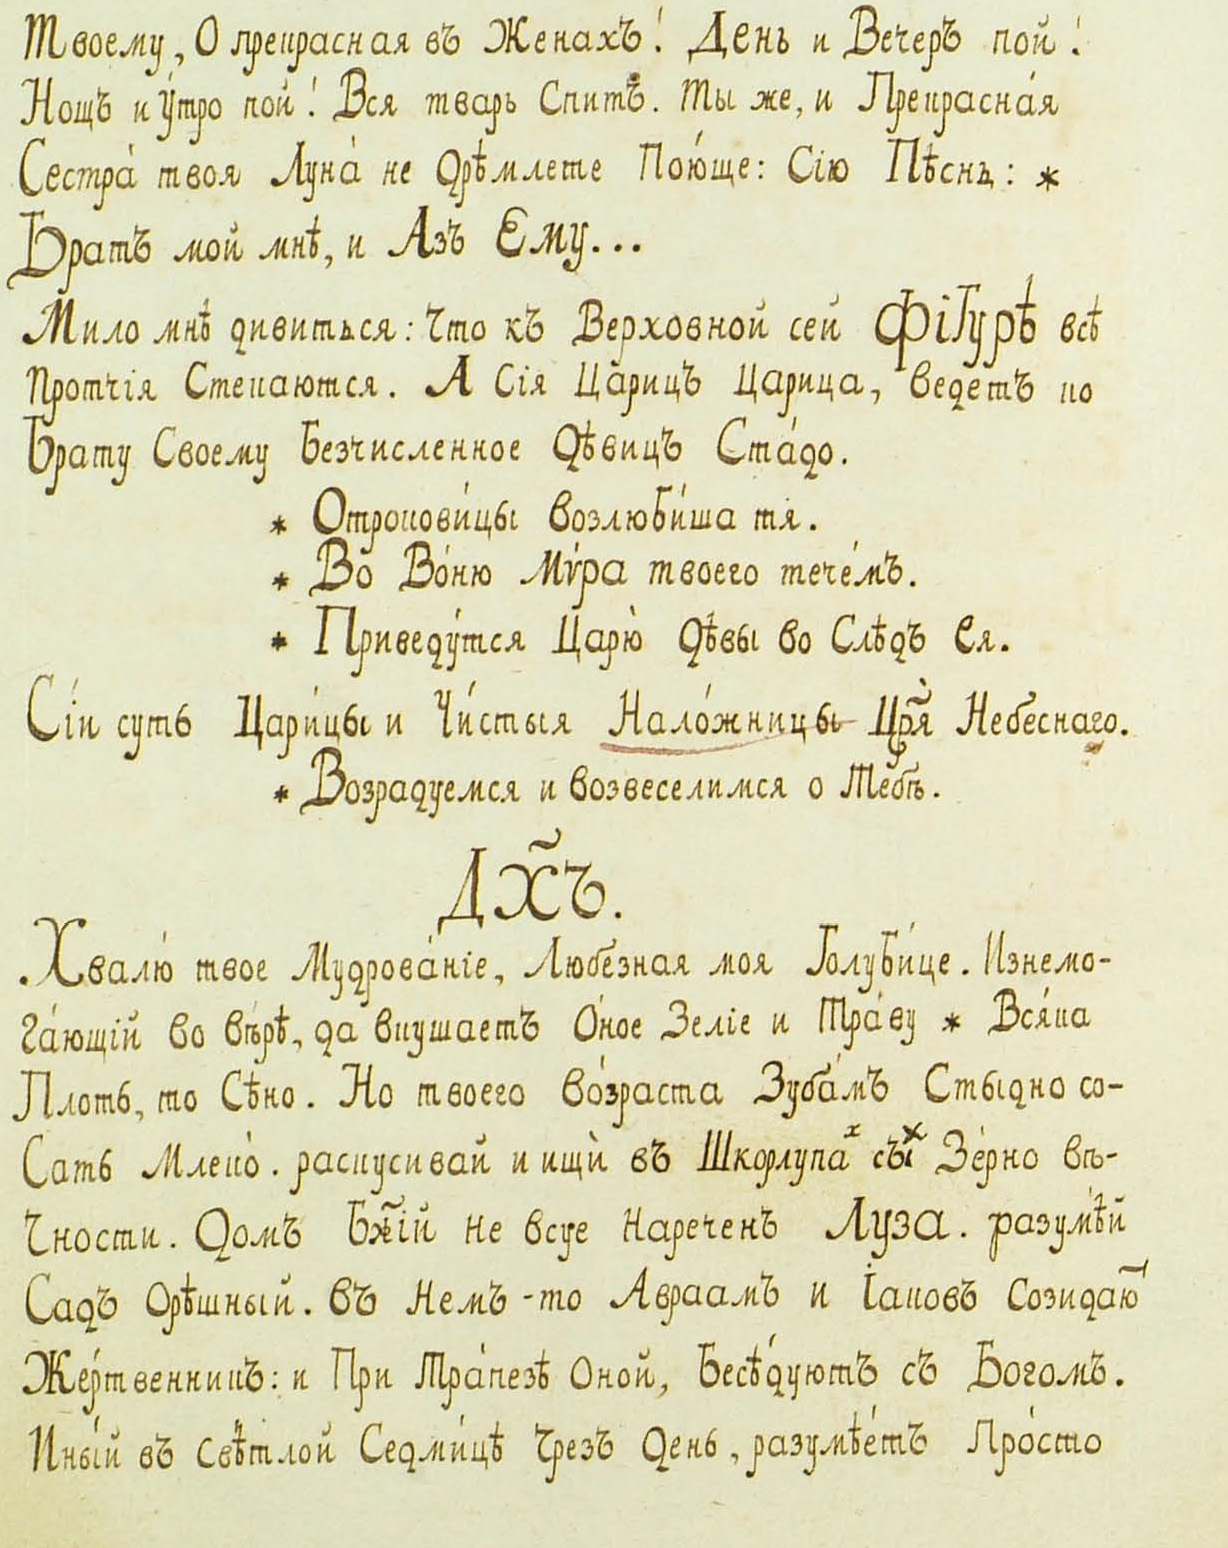 Твоему, О прекрасная въ Женахъ! День и Вечеръ пой!
Нощъ и у́тро пой! Вся тварь Спитъ. Ты же, и Прекрасна́я
Сестра̀ твоя Луна̀ не дрѣмлете По́юще: Сію Пѣснь: *
Братъ мой мнѣ, и Азъ Ему...
Мило мнѣ дивиться: Что къ Верховной сей Фігурѣ всѣ
протчія Стекаются. А Сія Ца́рицъ Царица, ведетъ ко
Брату Своему Безчисленное Дѣвицъ Ста́до.
* Отрокови́цы возлюби́ша тя.
* Во Во́ню Мѵ́ра твоего тече́мъ.
* Приведу́тся Царю̀ Дѣвы во Слѣдъ Ея.
Сі́и суть Цари́цы и Чи́стыя Нало́жницы Цр҃я̀ Небеснаго.
* Возрадуемся и возвеселимся о Тебѣ.
ДХ҃Ъ.
Хвалю̀ твое Мудрова́ніе, Любезная моя Голуби́це. Изнемо-
га́ющій во вѣрѣ, да вкушаетъ О́ное Зеліе и Тра́ву * Вся́ка
Плоть, то Сѣно. Но твоего во́зраста Зуба́мъ Стыдно со-
Сать Млеко̀. раскусивай и ищѝ въ Шкорлупаˣ сы́ˣ Зе́рно вѣ-
Чности. Домъ Бж҃ій не всуе нареченъ Луза. разумѣ́й
Садъ Орѣшный. въ немъ-то Авраамъ и Іаковъ созидаю҃
Же́ртвенникъ: и При Тра́пезѣ Оной, Бесѣ́дуютъ съ Богомъ.
Ины́й въ свѣ́тлой Седми́цѣ Чрезъ День, разумѣ́етъ Про́сто